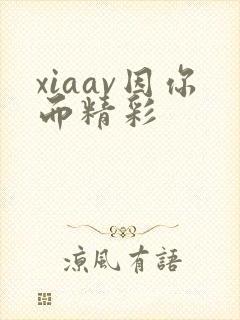 xiaav因你
而精彩
涼风有語